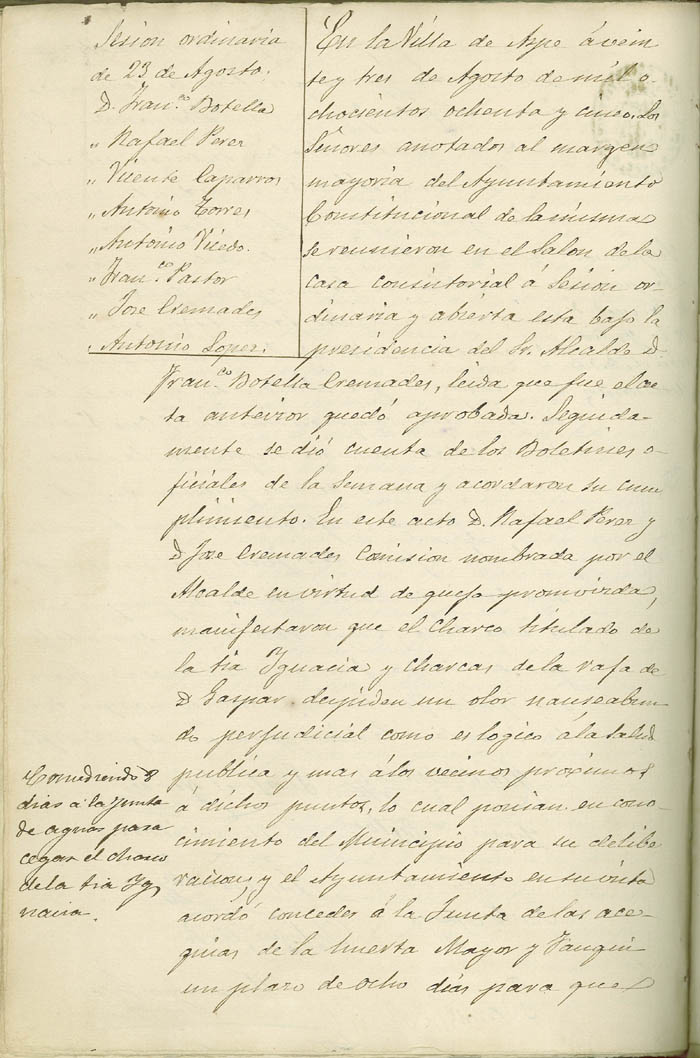 Sesion ordinaria
de 23 de Agosto.
D. Fran.co Botella
" Rafael Perez
" Vicente Caparros
" Antonio Torres
" Antonio Vicedo.
" Fran.co Pastor
" Jose Cremades
" Antonio Lopez.
En la Villa de Aspe á vein
te y tres de Agosto de mil o-
chocientos ochenta y cinco, Los
Señores anotados al margen
mayoria del Ayuntamiento
Constitucional de la misma
se reunieron en el Salon de la
casa consistorial á Sesion or-
dinaria y abierta esta bajo la
presidencia del Sr. Alcalde D.
Fran.co Botella Cremades, leida que fue el ac
ta anterior quedó aprobada. Seguida-
mente se dió cuenta de los Boletines o-
ficiales de la Semana y acordaron su cum
plimiento. En este acto D. Rafael Perez y
D. Jose Cremades Comision nombrada por el
Alcalde en virtud de queja promovida,
manifestaron que el Charco titulado de
la tia Ygnacia y Charcas de la rafa de
D. Gaspar despiden un olor nauseabun
do perjudicial como es logico á la salud
publica y mas á los vecinos proximos
á dichos puntos, lo cual ponian en cono-
cimiento del Municipio para su delibe
racion, y el Ayuntamiento en su vista
acordó conceder á la Junta de las ace-
quias de la huerta Mayor y Fauquin
un plazo de ocho dias para que
Concediendo 8
dias a la Junta
de aguas para
cegar el charco
de la tia Yg
nacia.